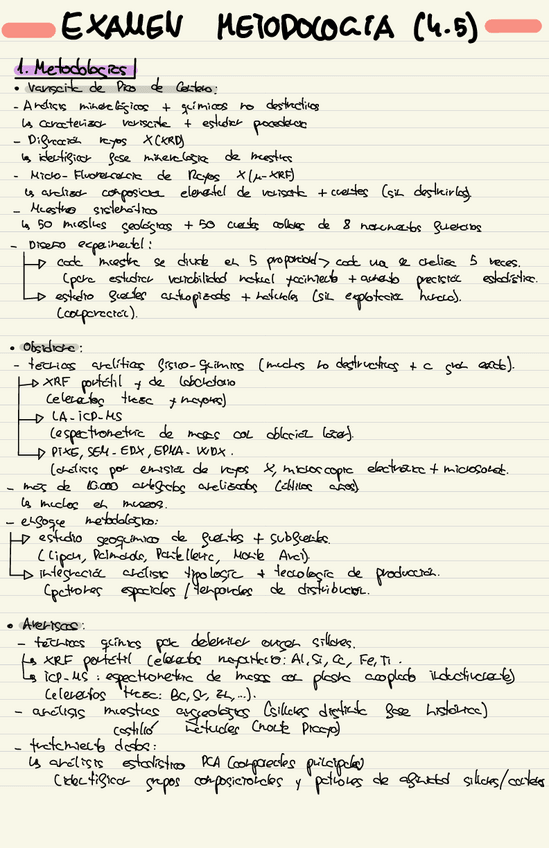 EXAMEN METODOLOGÍA (4.5)
1. Metodologías
• Variscita de Pico de Centeno:
- Análisis mineralógicos + químicos no destructivos
↳ caracterizar variscita + estudiar procedencia
- Difracción rayos X (XRD)
↳ identificar fase mineralógica de muestras
- Micro-Fluorescencia de Rayos X (μ-XRF)
↳ analizar composición elemental de variscita + cuentas (sin destruirlas).
- Muestreo sistemático
↳ 50 muestras geológicas + 50 cuentas collares de 8 monumentos funerarios
- Diseño experimental:
→ cada muestra se divide en 5 porciones → cada una se analiza 5 veces.
(para estudiar variabilidad natural yacimiento + aumento precisión estadística.
→ estudio fuentes antropizadas + naturales (sin explotación humana).
(comparación).
• Obsidiana:
- técnicas analíticas físico-químicas (muchas no destructivas + a gran escala).
→ XRF portátil y de laboratorio
(elementos traza y mayores)
→ LA-ICP-MS
(espectrometría de masas con ablación láser).
→ PIXE, SEM-EDX, EPMA-WDX.
(análisis por emisión de rayos X, microscopía electrónica + microsonda.
- más de 10.000 artefactos analizados (últimos años)
↳ muchos en museos.
- enfoque metodológico:
→ estudio geoquímico de fuentes + subfuentes.
(Lipari, Palmarola, Pantelleria, Monte Arci)
→ integración análisis tipología + tecnología de producción.
(patrones espaciales / temporales de distribución.
• Areniscas:
- técnicas química para determinar origen sillares.
↳ XRF portátil (elementos mayoritarios: Al, Si, Ca, Fe, Ti.
↳ ICP-MS: espectrometría de masas con plasma acoplado inductivamente)
(elementos traza: Ba, Sr, Zn, ...).
- análisis muestras arqueológicas (sillares distintas fase histórica)
castillo naturales (monte Picayo)
- tratamiento datos:
↳ análisis estadístico PCA (componentes principales)
(identificar grupos composicionales y patrones de afinidad sillares/canteras